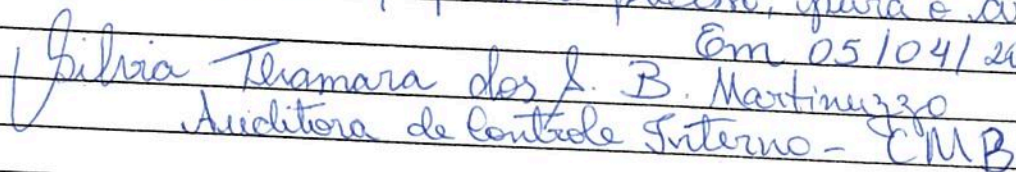 Em 05/04/20
Silvia Thamara dos S. B. Martinuzzo
Auditora de Controle Interno - CMB